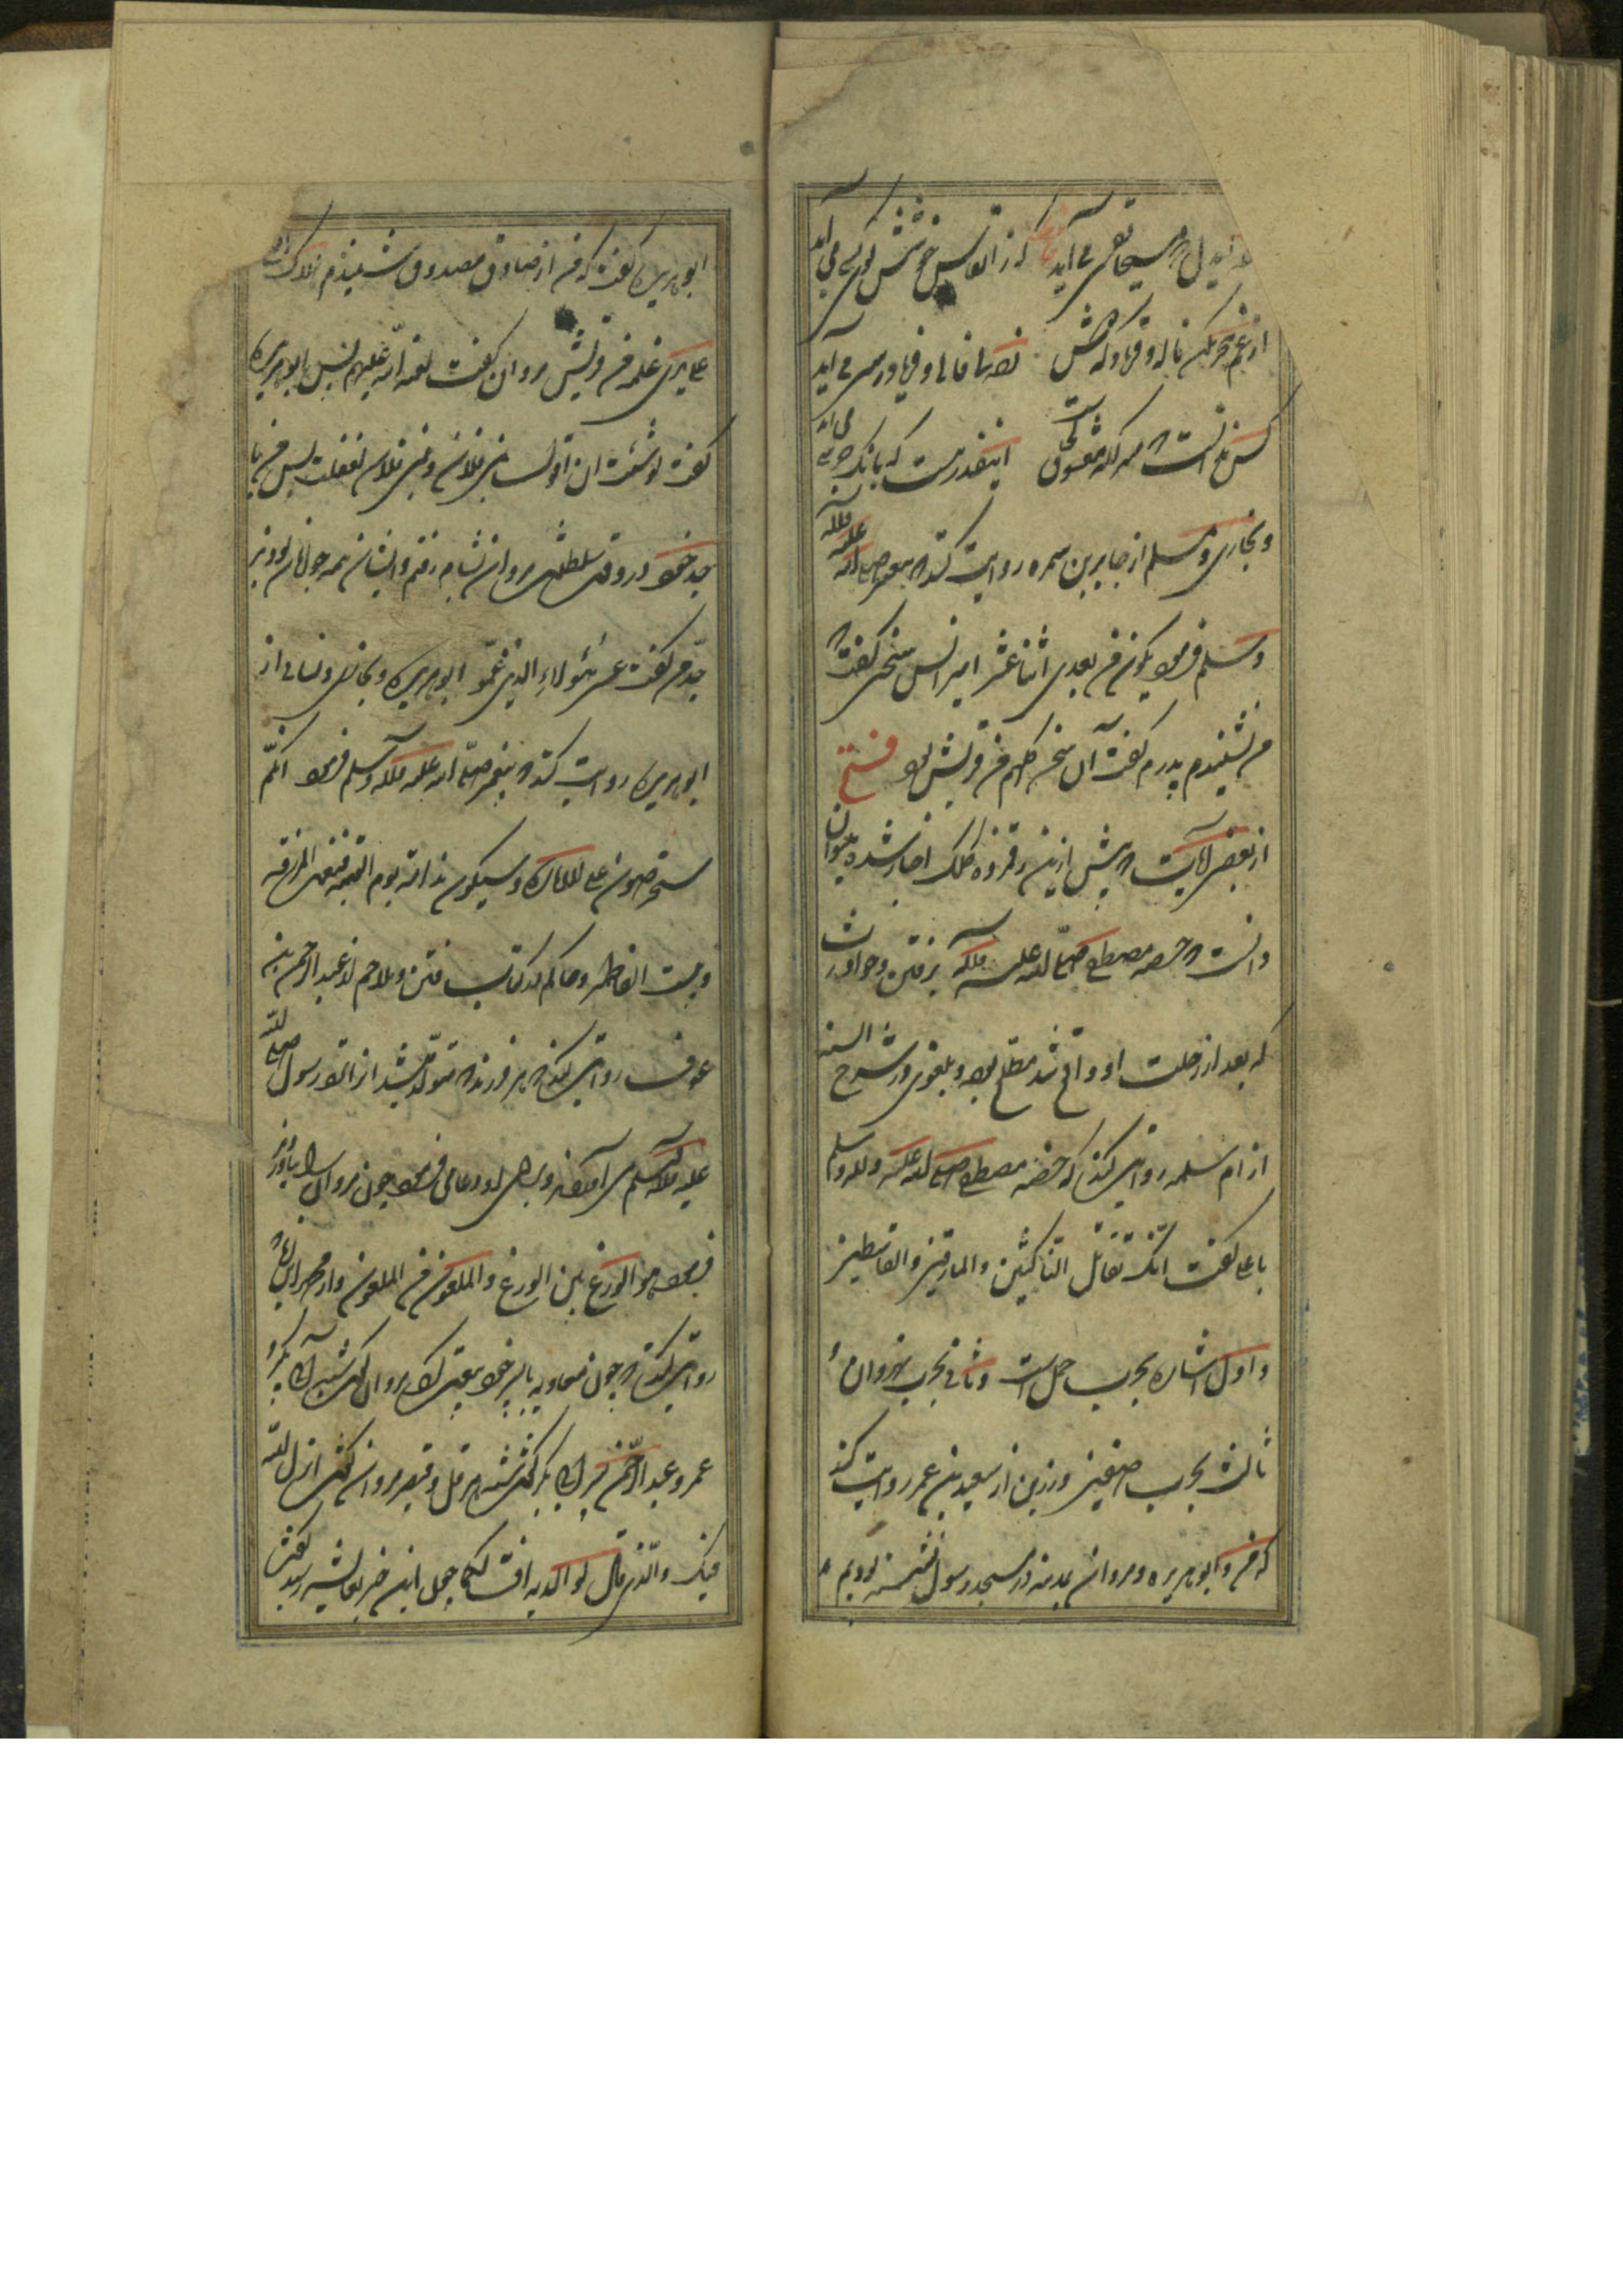 ایدل که مسیحا نفسی می آید که ز انفاس خوشش بوی کسی می آید
از غم هجر مکن ناله و فریاد که دوش زده ام فالی و فریادرسی می آید
کس ندانست که منزلگه معشوق کجاست اینقدر هست که بانگ جرسی می آید
و بخاری و مسلم از جابر بن سمره روایت کنند که پیغمبر صلی الله علیه وآله
وسلم فرمود یکون من بعدی اثنا عشر امیرا پس سخنی گفت که
من نشنیدم پدرم گفت آن سخن کلهم من قریش بود فتح
از بعضی آیات که پیش ازین رقم زده کلک اخبار شده میتوان
دانست که حضرت مصطفی صلی الله علیه وآله بر فتن و حوادث
که بعد از رحلت او واقع شد مطلع بود و بغوی در شرح السنه
از ام سلمه روایت کند که حضرت مصطفی صلی الله علیه وآله وسلم
با علی گفت انک تقاتل الناکثین والمارقین والقاسطین
و اول اشاره بحرب جمل است و ثانی بحرب نهروان و
ثالث بحرب صفین و رزین از سعید بن عمر روایت کند
که من و ابو هریره و مروان بمدینه در مسجد رسول نشسته بودیم
ابو هریره گفت که من از صادق مصدوق شنیدم هلاک امتی
علی یدی غلمة من قریش مروان گفت لعنة الله علیهم پس ابو هریره
گفت لو شئت ان اقول بنی فلان و بنی فلان لفعلت پس من با
جد خود در وقت سلطنت مروان بشام رفتم و ایشان همه جوانان بودند
جدم گفت عسی هؤلاء الذین عمو ابو هریره و بخاری و نسائی از
ابو هریره روایت کنند که پیغمبر صلی الله علیه وآله وسلم فرمود انکم
ستحرصون علی الامارة وسیکون ندامة یوم القیمة فنعم المرضعة
وبئست الفاطمه و حاکم در کتاب فتن و ملاحم از عبد الرحمن بن
عوف روایت کند که هر فرزند که متولد میشد او را نزد رسول صلی الله
علیه وآله وسلم می آوردند و برای او دعا می فرمود چون مروان را بیاوردند
فرمود هو الوزغ بن الوزغ والملعون بن الملعون و از محمد بن زیاد
روایت کند که چون معاویه با پسر خود بیعت کرد مروان گفت سنة ابی بکر و
عمر و عبد الرحمن بن ابی بکر گفت سنة هرقل و قیصر مروان گفت انزل الله
فیک والذی قال لوالدیه اف لکما چون این خبر بعایشه رسید گفت